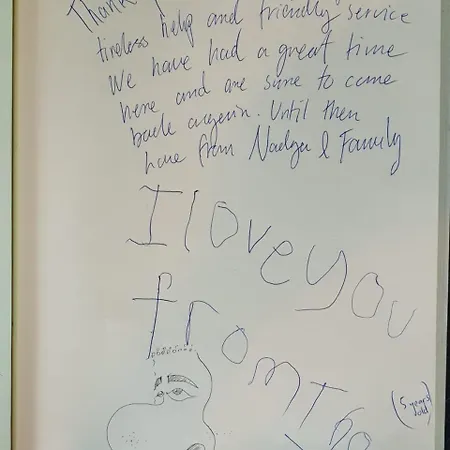 Thank
tireless help and friendly service
We have had a great time
here and are sure to come
back again. Until then
love from Nadya & Family
I love you
from T
(5 years
old)